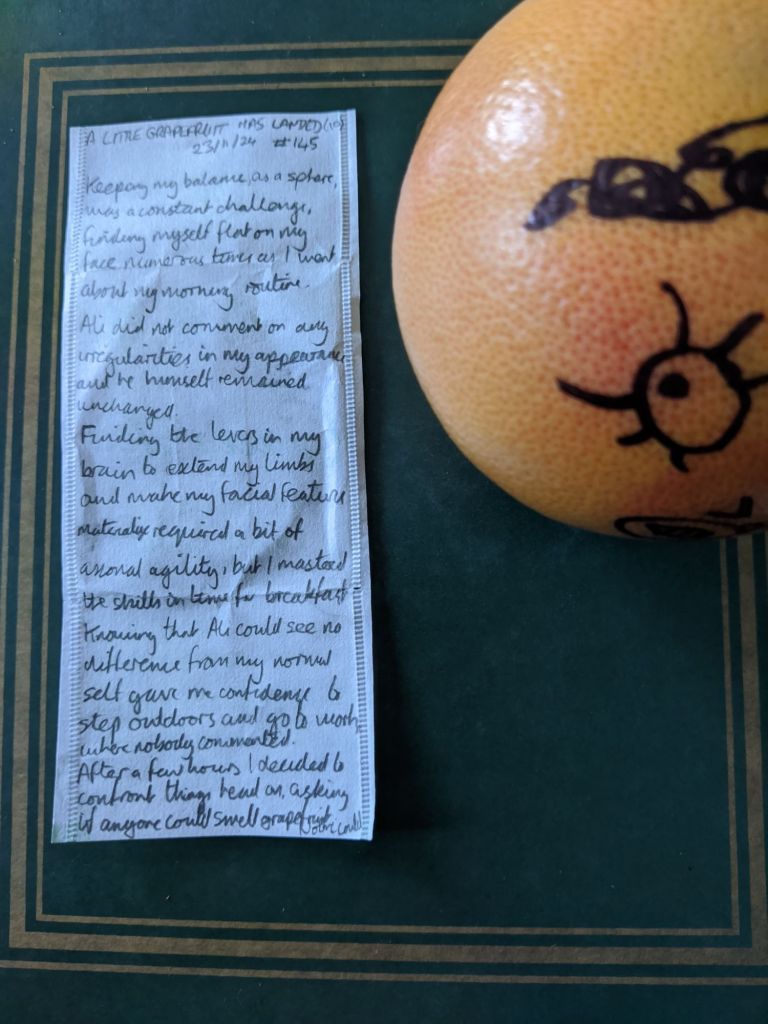 A LITTLE GRAPEFRUIT HAS LANDED (10)
23/11/24 #145
Keeping my balance, as a sphere,
was a constant challenge,
finding myself flat on my
face numerous times as I went
about my morning routine.
Ali did not comment on any
irregularities in my appearance
and he himself remained
unchanged.
Finding the levers in my
brain to extend my limbs
and make my facial features
materialize required a bit of
axonal agility, but I mastered
the skills in time for breakfast.
Knowing that Ali could see no
difference from my normal
self gave me confidence to
step outdoors and go to work,
where nobody commented.
After a few hours I decided to
confront things head on, asking
if anyone could smell grapefruit.
could